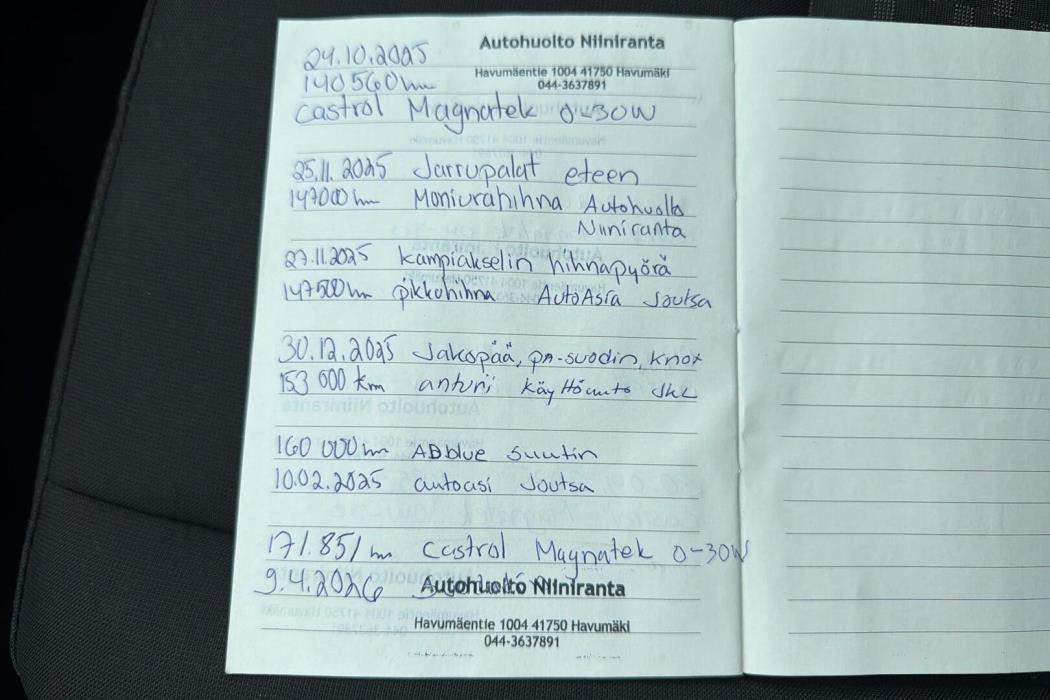 24.10.2025 Autohuolto Niiniranta
140560 km Havumäentie 1004 41750 Havumäki
044-3637891
Castrol Magnatek 0-30W
25.11.2025 Jarrupalat eteen
147000 km Moniurahihna Autohuolto
Niiniranta
27.11.2025 kampiakselin hihnapyörä
147500 km pikkuhihna AutoAsia Joutsa
30.12.2025 Jakopää, pa-suodin, knox
153 000 km anturi Käyttöauto JKL
160 000 km ADblue suutin
10.02.2025 autoasi Joutsa
171.851 km Castrol Magnatek 0-30W
9.4.2026 Autohuolto Niiniranta
Havumäentie 1004 41750 Havumäki
044-3637891